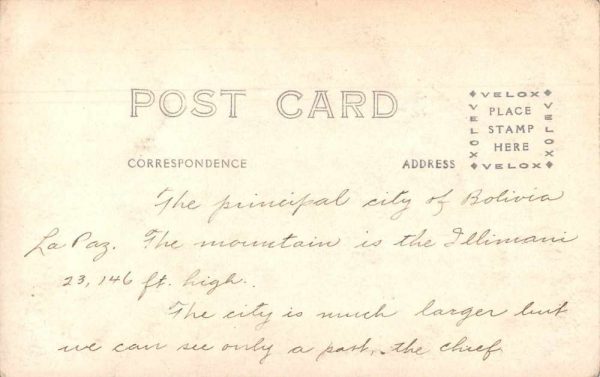 POST CARD
VELOX
VELOX
PLACE
STAMP
HERE
VELOX
VELOX
CORRESPONDENCE
ADDRESS
The principal city of Bolivia
La Paz. The mountain is the Illimani
23,146 ft. high.
The city is much larger but
we can see only a part, the chief